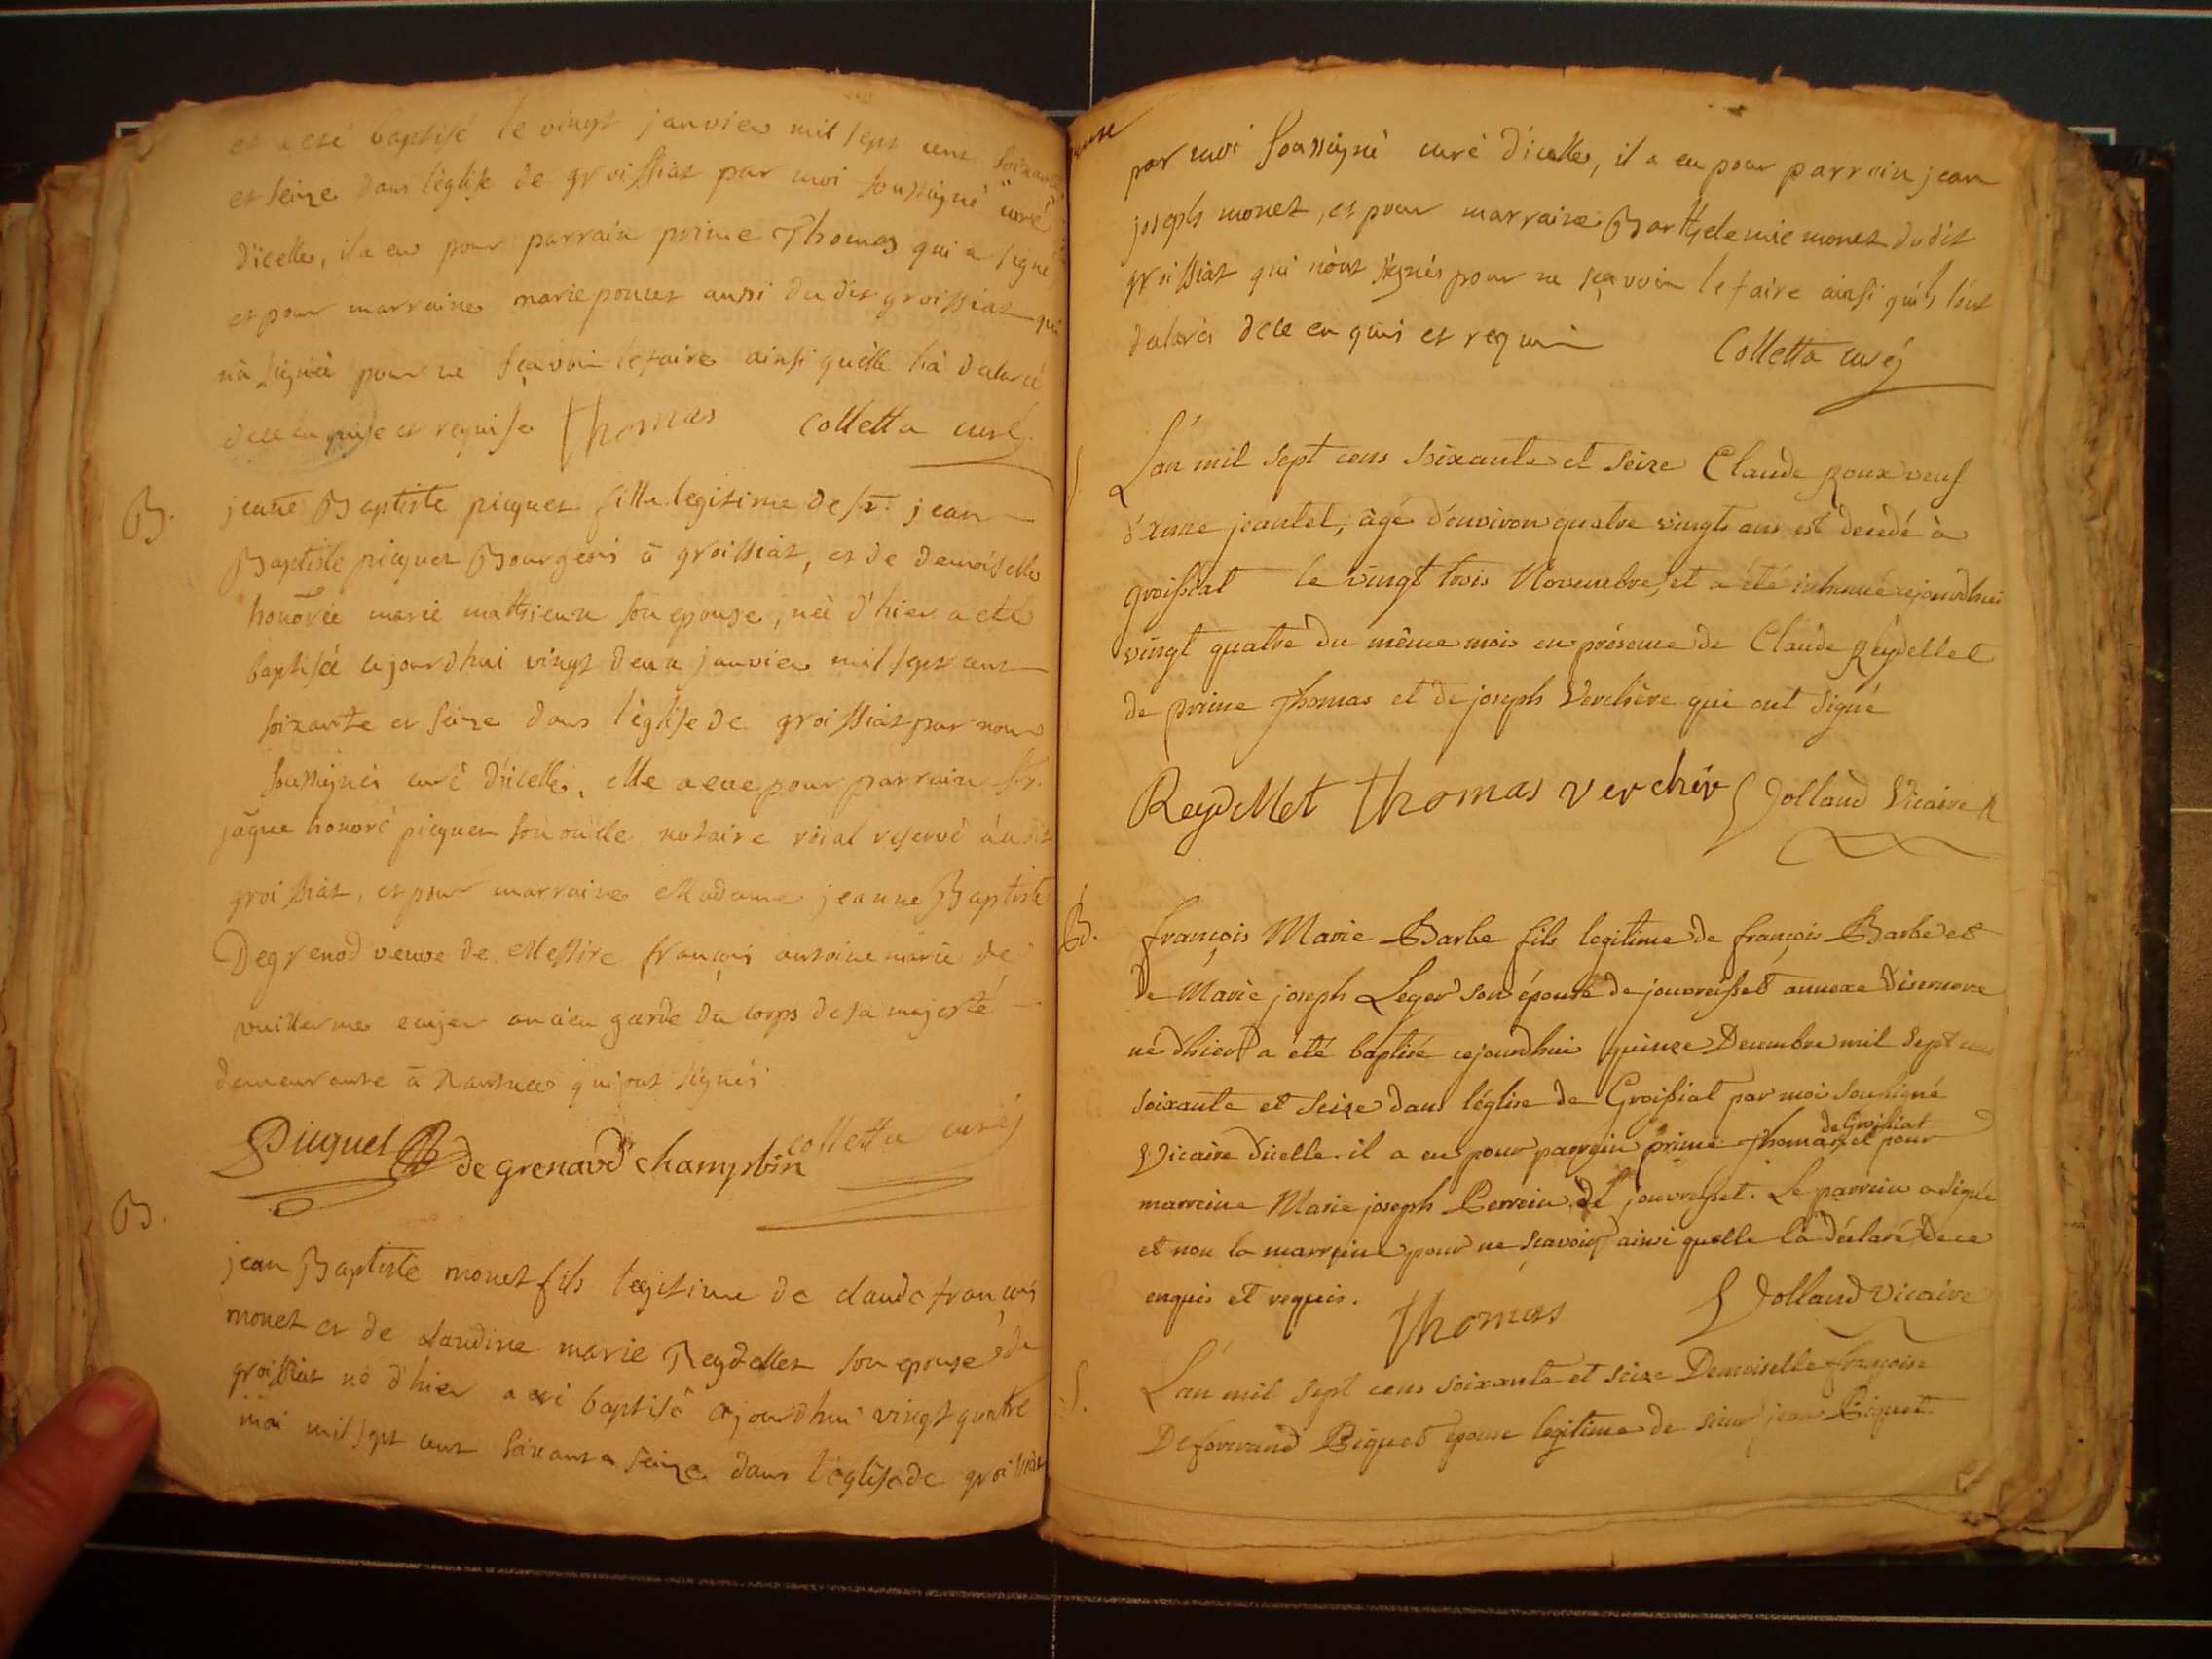 et a eté baptisé le vingt janvier mil sept cent soixante
et seize dans l'eglise de groissiat par moi soussigné curé
d'icelle, il a eu pour parrain prime Thomas qui a signé
et pour marraine marie poncet aussi du dit groissiat qui
n'a signée pour ne sçavoir le faire ainsi qu'elle l'a declaré
de ce enquise et requise Thomas Colletta curé
B. jeane Baptiste picquet fille legitime de sr. jean
Baptiste picquet Bourgeois à groissiat, et de demoiselle
honorée marie mathieux son epouse, née d'hier a eté
baptisée cejourdhui vingt deux janvier mil sept cent
soixante et seize dans l'eglise de groissiat par nous
soussignés curé d'icelle, elle a eue pour parrain sr.
jâque honoré picquet son oncle notaire roial reservé audit
groissiat, et pour marraine Madame jeanne Baptiste
Degrenod veuve de Messire françois antoine marie de
vuillerme ancien garde du corps de sa majesté
demeurante à qui ont signés
Picquet de grenaud champvin colletta curé
B.
jean Baptiste monet fils legitime de claude françois
monet et de claudine marie Reydellet son epouse de
groissiat né d'hier a eté baptisé cejourdhui vingt quatre
mai mil sept cent soixante seize dans l'eglise de groissiat
par moi soussigné curé d'icelle, il a eu pour parrain jean
joseph monet, et pour marraine Barthelemie monet dudit
groissiat qui n'ont signés pour ne sçavoir le faire ainsi qu'ils l'ont
declarés de ce enquis et requis Colletta curé
S. L'an mil sept cens soixante et seize Claude Roux veuf
d' jeantet, âgé d'environ quatre vingts ans est décédé à
groissiat le vingt trois Novembre, et a été inhumé cejourdhui
vingt quatre du même mois en présence de Claude Reydellet
de prime Thomas et de joseph Verchère qui ont signé
Reydellet Thomas vercher Jolland Vicaire
B. françois Marie Barbe fils legitime de françois Barbe et
de Marie joseph Leger son épouse de jouvreisset annexe disernore
né d'hier a été baptisé cejourdhui quinze Decembre mil sept cens
soixante et seize dans l'église de Groissiat par moi soussigné
de Groissiat
Vicaire d'icelle. il a eu pour parrein prime Thomas, et pour
marreine Marie joseph Perrein de jouvresset. Le parrein a signé
et non la marreine pour ne sçavoir ainsi quelle la déclaré, de ce
enquis et requis. Thomas Jolland vicaire
S. L'an mil sept cens soixante et seize Demoiselle françoise
Piquet épouse legitime de sieur jean Piquet